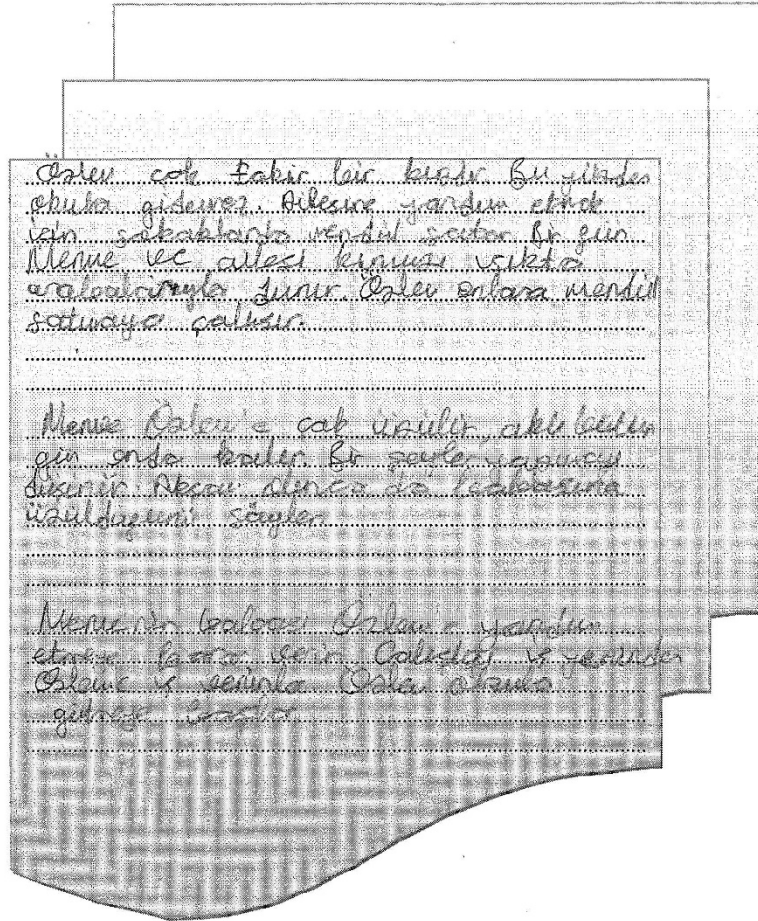 Özlem çok fakir bir kızdır. Bu yüzden
okula gidemez. Ailesine yardım etmek
için sokaklarda mendil satar. Bir gün
Merve ve ailesi kırmızı ışıkta
arabalarıyla durur. Özlem onlara mendil
satmaya çalışır.
Merve Özlem'e çok üzülür, aklı bütün
gün onda kalır. Bir şeyler yapmayı
düşünür. Akşam olunca da babasına
üzüldüğünü söyler
Merve'nin babası Özlem'e yardım
etmeye karar verir. Çalıştığı iş yerinde
Özleme iş verir Özlem okula
gitmeye başlar